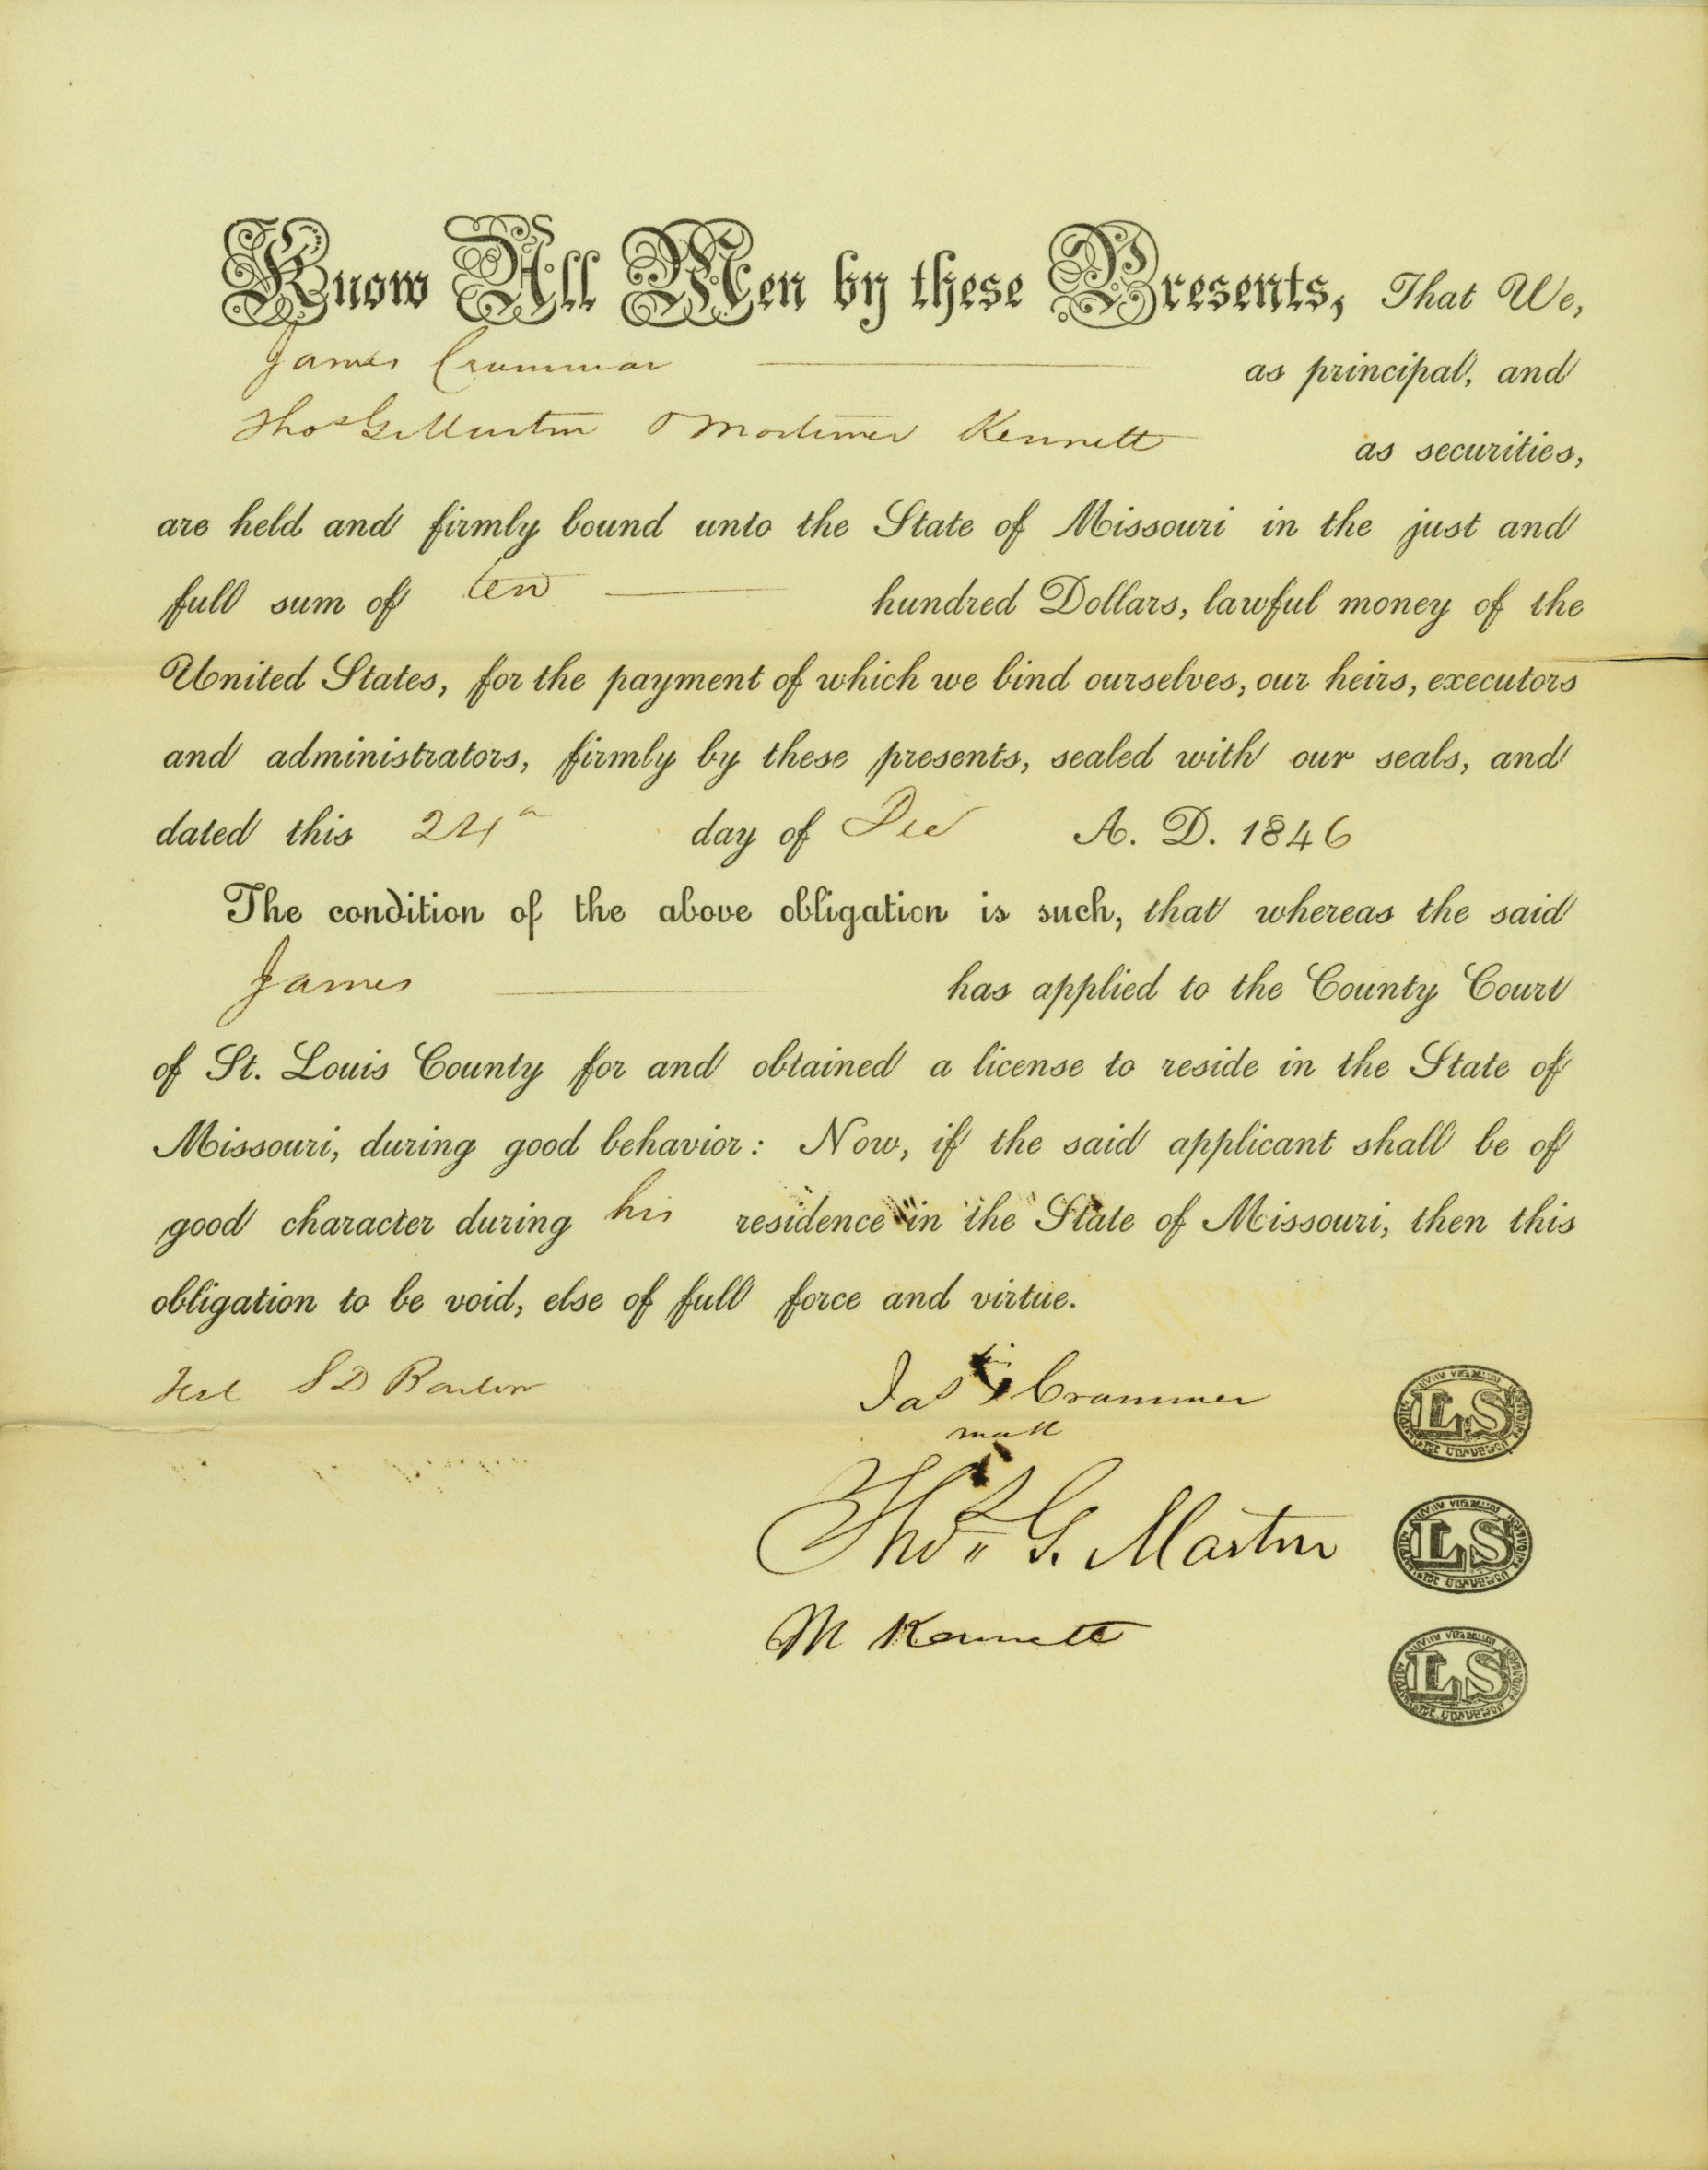 Know All Men by these Presents, That We,
James Crammar as principal, and
Thos G Martin & Mortimer Kennett as securities,
are held and firmly bound unto the State of Missouri in the just and
full sum of ten hundred Dollars, lawful money of the
United States, for the payment of which we bind ourselves, our heirs, executors
and administrators, firmly by these presents, sealed with our seals, and
dated this 24th day of Dec A. D. 1846
The condition of the above obligation is such, that whereas the said
James has applied to the County Court
of St. Louis County for and obtained a license to reside in the State of
Missouri, during good behavior: Now, if the said applicant shall be of
good character during his residence in the State of Missouri, then this
obligation to be void, else of full force and virtue.
Test S D Barlow
his
Jas X Crammer
mark
LS
Thos G. Martin
LS
M Kennett
LS